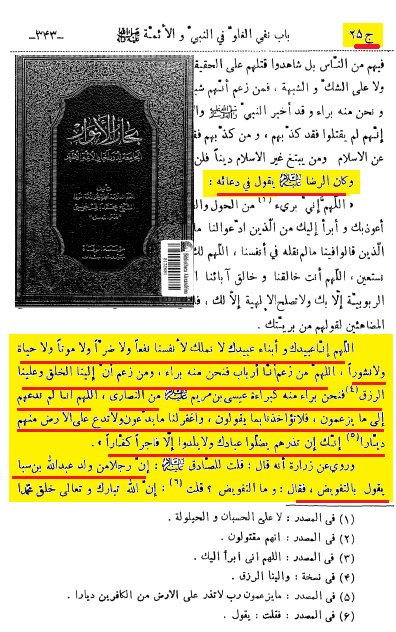 ج ٢٥ باب نفي الغلوّ في النبيّ و الأئمّة عليهم السلام -٣٤٣-
فيهم من النّاس بل شاهدوا قتلهم على الحقيقة
ولا على الشكّ و الشبهة ، فمن زعم أنّهم
و نحن منه براء و قد أخبر النبيّ
إنّهم لم يقتلوا فقد كذّبهم ، و من كذّبهم
عن الاسلام ومن يبتغ غير الاسلام ديناً فلن
وكان الرضا عليه السلام يقول في دعائه :
« اللّهمّ إنّي بريء (١) من الحول والقوّة
أعوذبك و أبرأ إليك من الّذين ادّعوا لنا
الّذين قالوا فينا مالم نقله في أنفسنا ، اللّهمّ لك
نستعين ، اللّهمّ أنت خالقنا و خالق آبائنا
الربوبيّة إلّا بك ولا تصلح الإلهية إلّا لك ،
المضاهئين لقولهم من بريّتك .
اللّهم إنّا عبيدك و أبناء عبيدك لا نملك لأنفسنا نفعاً ولا ضرّاً ولا موتاً ولا حياة
ولا نشوراً ، اللّهمّ من زعم أنّا أرباب فنحن منه براء ، ومن زعم أنّ إلينا الخلق وعلينا
الرزق (٤) فنحن براء منه كبراءة عيسى بن مريم عليه السلام من النصارى ، اللّهم إنّا لم ندعهم
إلى ما يزعمون ، فلا تؤاخذنا بما يقولون ، واغفر لنا ما يدّعون ولا تدع على الأرض منهم
ديّاراً (٥) إنّك إن تذرهم يضلّوا عبادك ولا يلدوا إلّا فاجراً كفّاراً » .
وروي عن زرارة أنه قال : قلت للصّادق عليه السلام : إنّ رجلاً من ولد عبدالله بن سبا
يقول بالتفويض ، فقال : و ما التفويض ؟ قلت (٦) : إنّ الله تبارك و تعالى خلق محمّداً
(١) في المصدر : لا على الحسبان و الحيلولة .
(٢) في المصدر : انهم مقتولون .
(٣) في المصدر : اللهم اني أبرأ اليك .
(٤) في نسخة : والينا الرزق .
(٥) في المصدر : ما يزعمون رب لا تذر على الارض من الكافرين ديارا .
(٦) في المصدر : فقلت : يقول .
بحار الأنوار